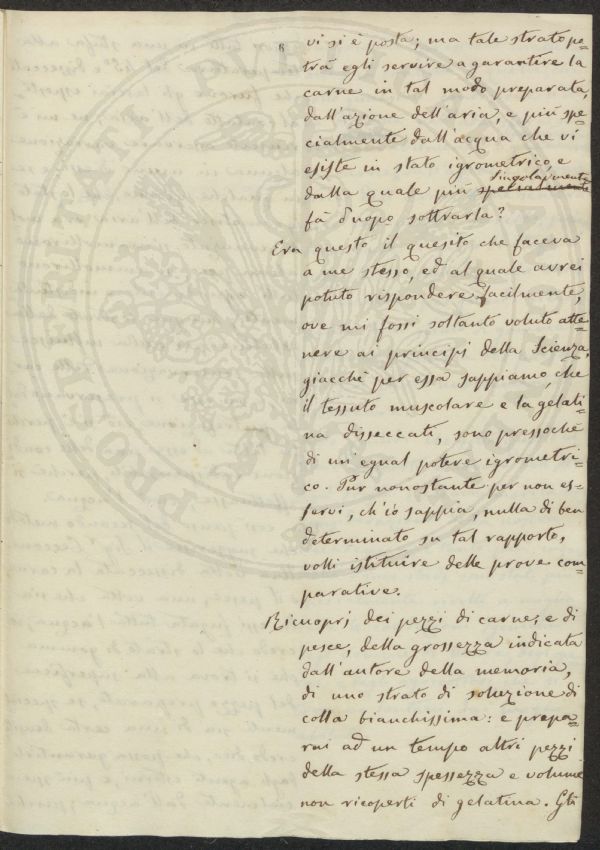 6
vi si è posta; ma tale strato po=
trà egli servire a garantire la
carne in tal modo preparata,
dall'azione dell'aria, e più spe=
cialmente dall'acqua che vi
esiste in stato igrometrico, e
singolarmente
dalla quale più specialmente
fà d'uopo sottrarla?
Era questo il quesito che faceva
a me stesso, ed al quale avrei
potuto rispondere facilmente,
ove mi fossi soltanto voluto atte=
nere ai principi della Scienza,
giacchè per essa sappiamo, che
il tessuto muscolare e la gelati=
na disseccati, sono pressochè
di un'egual potere igrometri=
co. Pur nonostante per non es=
servi, ch'io sappia, nulla di ben
determinato su tal rapporto,
volli istituire delle prove com=
parative.
Ricuoprj dei pezzi di carne, e di
pesce, della grossezza indicata
dall'autore della memoria,
di uno strato di soluzione di
colla bianchissima: e prepa=
rai ad un tempo altri pezzi
della stessa spessezza e volume
non ricoperti di gelatina. Gli
PROSPERITATI AVG